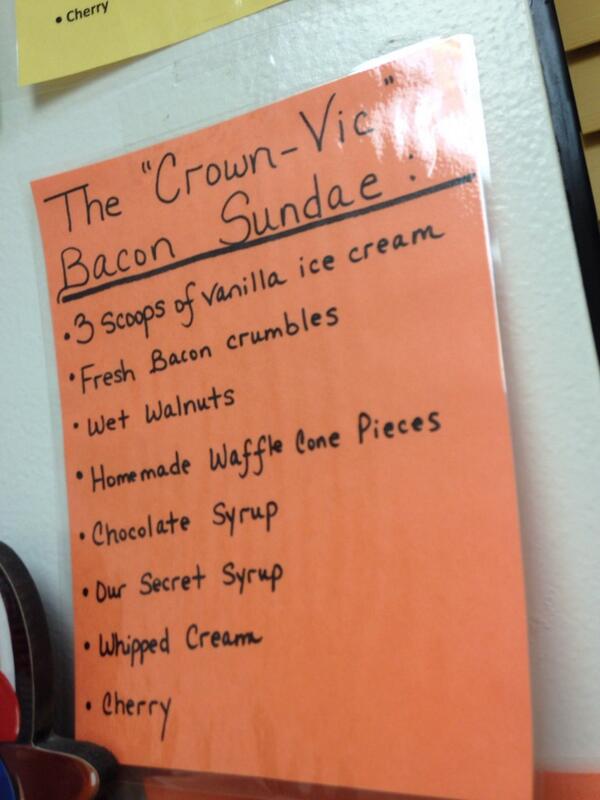 • Cherry
The "Crown-Vic"
Bacon Sundae:
• 3 Scoops of vanilla ice cream
• Fresh Bacon crumbles
• Wet Walnuts
• Homemade Waffle Cone Pieces
• Chocolate Syrup
• Our Secret Syrup
• Whipped Cream
• Cherry